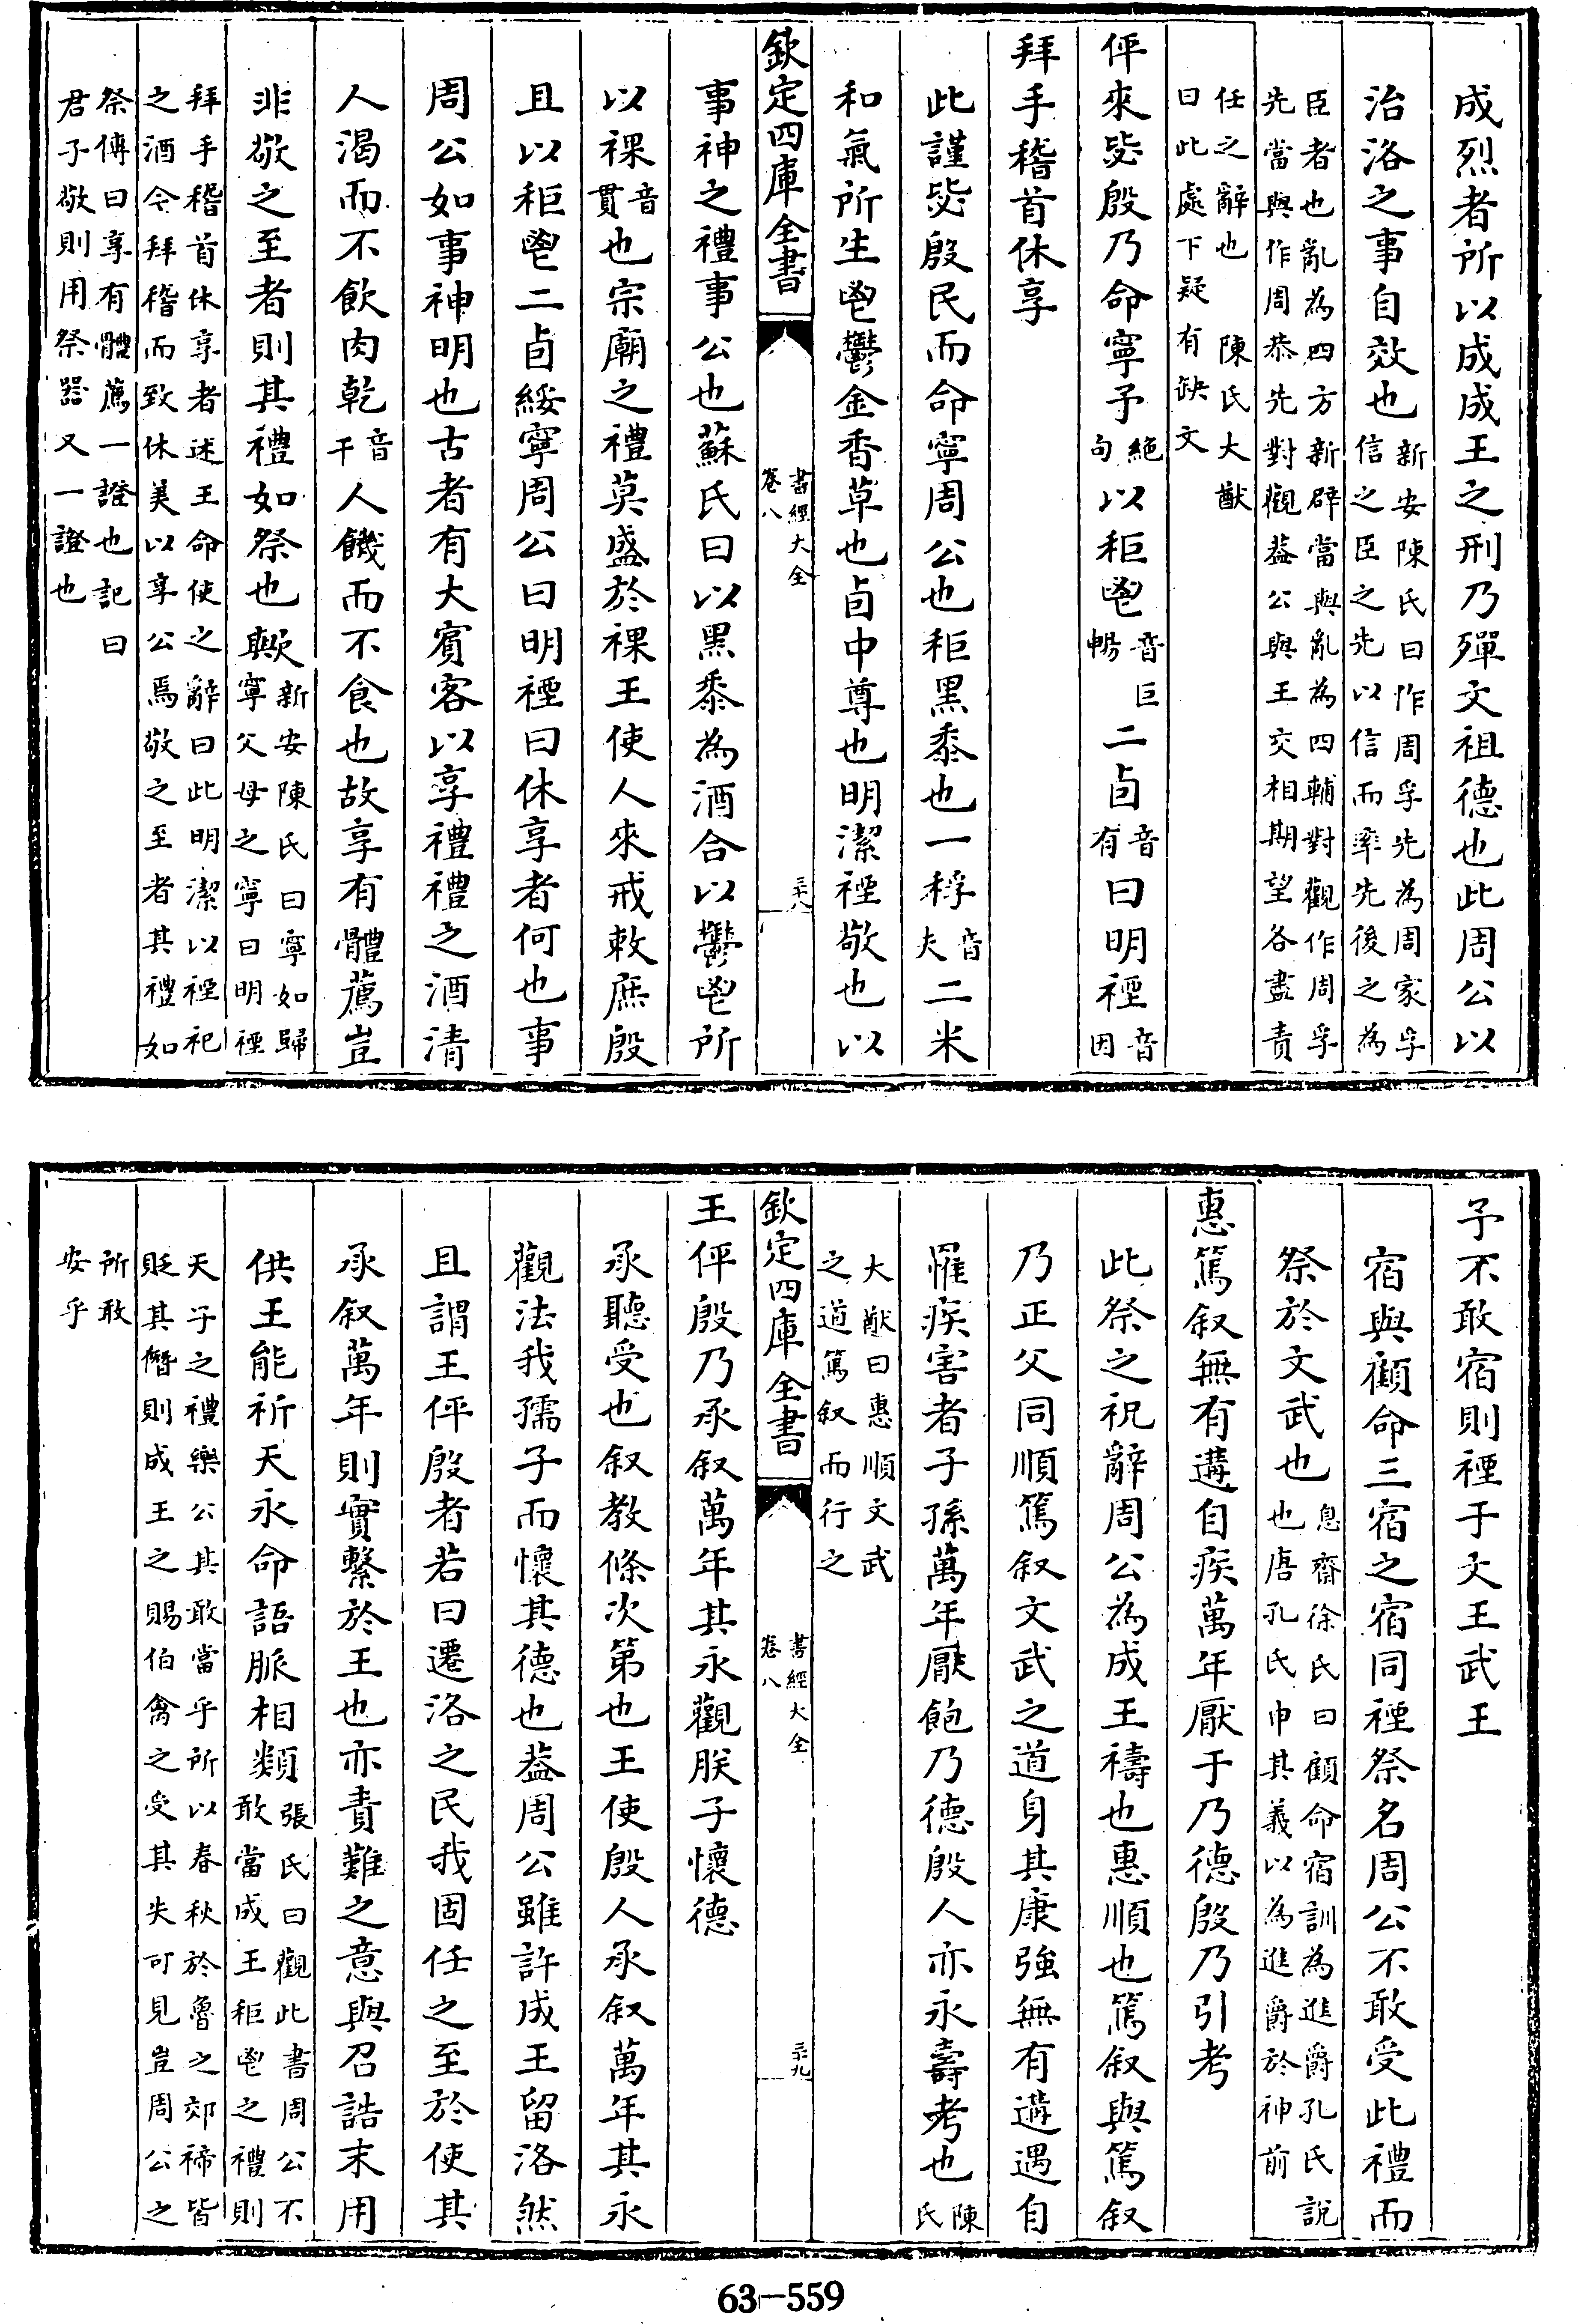 成烈者所以成成王之刑乃殫文祖德也此周公以
治洛之事自效也新安陳氏曰作周孚先為周家孚信之臣之先以信而率先後之為
臣者也亂為四方新辟當與亂為四輔對觀作周孚先當與作周恭先對觀蓋公與王交相期望各盡責
任之辭也 陳氏大猷曰此處下疑有缺文
伻來毖殷乃命寧予絕句以秬鬯音巨暢二卣音有曰明禋音因
拜手稽首休享
此謹毖殷民而命寧周公也秬黑黍也一稃音夫二米
和氣所生鬯鬱金香草也卣中尊也明潔禋敬也以
欽定四庫全書 書經大全卷八 三十八
事神之禮事公也蘇氏曰以黑黍為酒合以鬱鬯所
以祼音貫也宗廟之禮莫盛於祼王使人來戒敕庶殷
且以秬鬯二卣綏寧周公曰明禋曰休享者何也事
周公如事神明也古者有大賓客以享禮禮之酒清
人渴而不飲肉乾音干人饑而不食也故享有體薦豈
非敬之至者則其禮如祭也歟新安陳氏曰寧如歸寧父母之寧曰明禋
拜手稽首休享者述王命使之辭曰此明潔以禋祀之酒令拜稽而致休美以享公焉敬之至者其禮如
祭傳曰享有體薦一證也記曰君子敬則用祭器又一證也
予不敢宿則禋于文王武王
宿與顧命三宿之宿同禋祭名周公不敢受此禮而
祭於文武也息齋徐氏曰顧命宿訓為進爵孔氏說也唐孔氏申其義以為進爵於神前
惠篤叙無有遘自疾萬年厭于乃德殷乃引考
此祭之祝辭周公為成王禱也惠順也篤叙與篤叙
乃正父同順篤叙文武之道身其康強無有遘遇自
罹疾害者子孫萬年厭飽乃德殷人亦永壽考也陳氏
大猷曰惠順文武之道篤叙而行之
欽定四庫全書 書經大全卷八 三十九
王伻殷乃承叙萬年其永觀朕子懷德
承聽受也叙教條次第也王使殷人承叙萬年其永
觀法我孺子而懷其德也蓋周公雖許成王留洛然
且謂王伻殷者若曰遷洛之民我固任之至於使其
承叙萬年則實繫於王也亦責難之意與召誥末用
供王能祈天永命語脈相類張氏曰觀此書周公不敢當成王秬鬯之禮則
天子之禮樂公其敢當乎所以春秋於魯之郊禘皆貶其僭則成王之賜伯禽之受其失可見豈周公之
所敢安乎
63—559